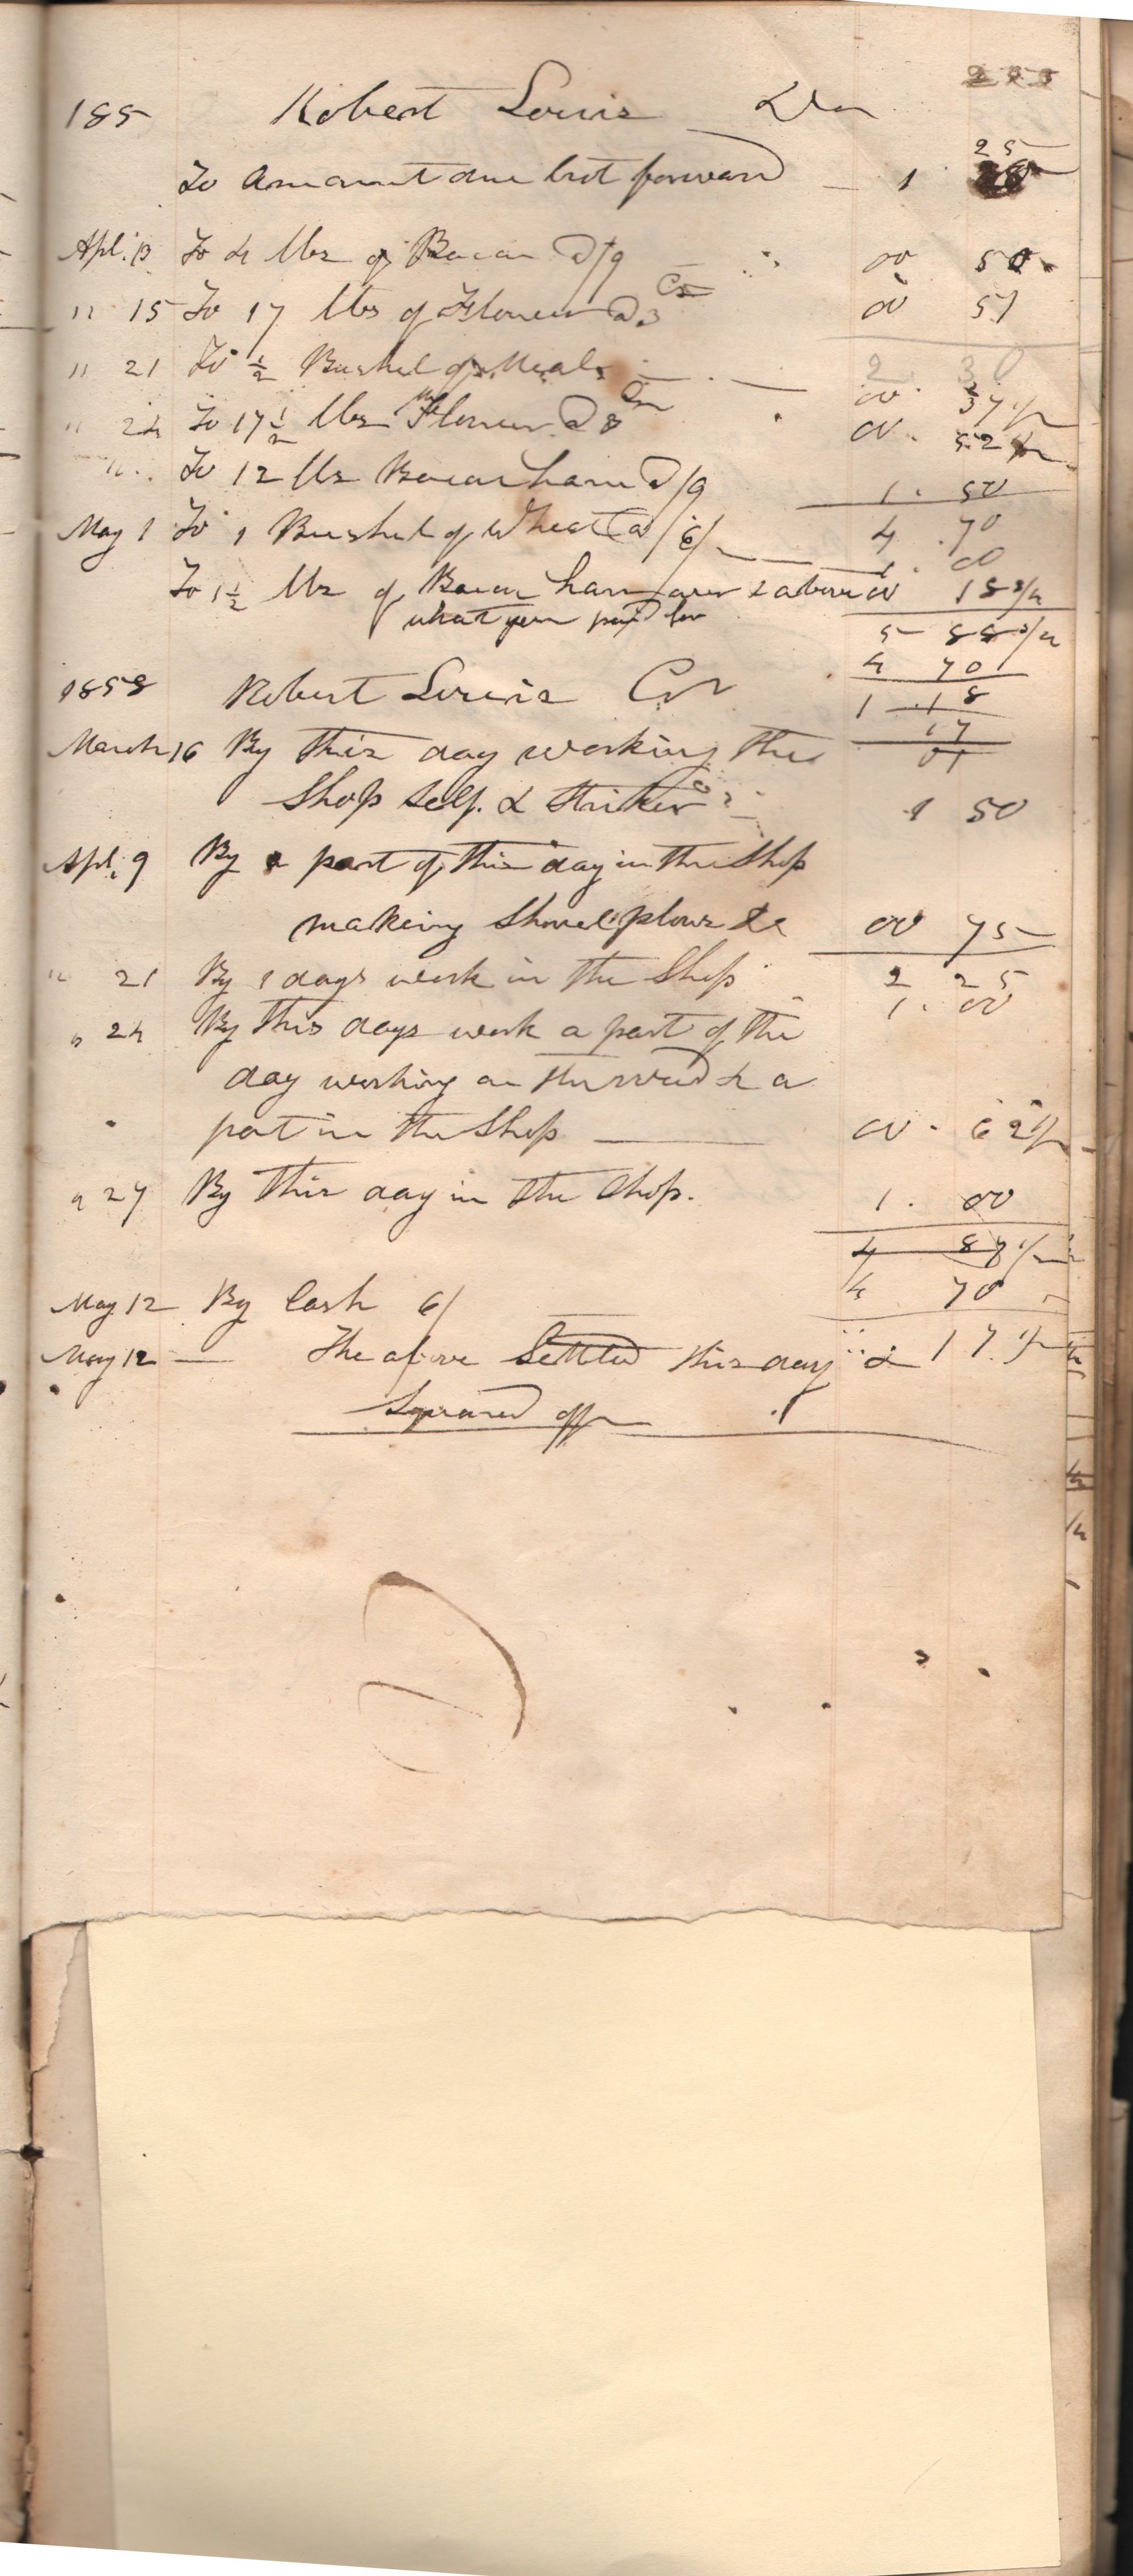 185 Robert Louis Dr
25
To Amount due brot forward 1
Apl. 13 To 4 lbs of Bacon @ /9 00 50
" 15 To 17 lbs of Flower @ 3 Cs 00 51
2 30
" 21 To ½ Bushel of Meal 00 37 ½
" 24 To 17 ½ lbs Flower @ 3 00 52 ½
" To 12 lbs Bacon ham @ /9 1. 50
4 .70
May 1 To 1 Bushel of Wheat @ /6/ 1. 00
To 1 ½ lbs of Bacon ham over & above 00 18 3/4
what you paid for
5 88 3/4
4 70
1858 Robert Louis Cr
1 .18
17
01
March 16 By this day working the
Shop self. & Striker 1 50
Apl. 9 By a part of this day in the Shop
making Shovel plows &c 00 75
2 25
" 21 By 1 days work in the Shop 1. 00
" 24 By this days work a part of the
day working on the road & a
part in the Shop 00. 62 ½
" 27 By this day in the Shop. 1. 00
4 87 ½
4 70
May 12 By Cash 6/
17 ½
May 12 — The above Settled this day &
Squared off